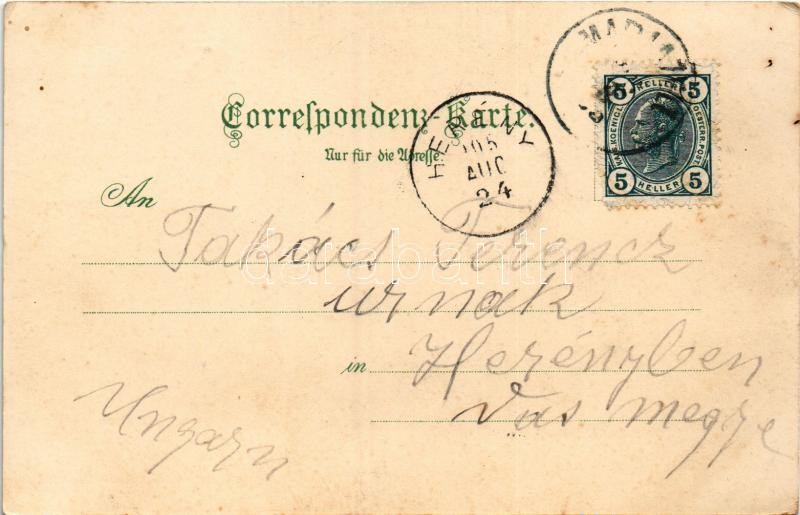 Correspondenz-Karte.
Nur für die Adresse.
HERÉNY
905
AUG
24
5 HELLER 5
KAIS. KOENIGL. OESTERR. POST
5 HELLER 5
An
Takács Ferencz
urnak
in Herényben
Vas megye
Ungarn
darabanth